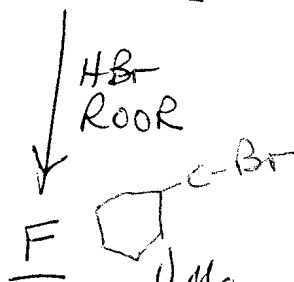 HBr
ROOR
C-Br
F